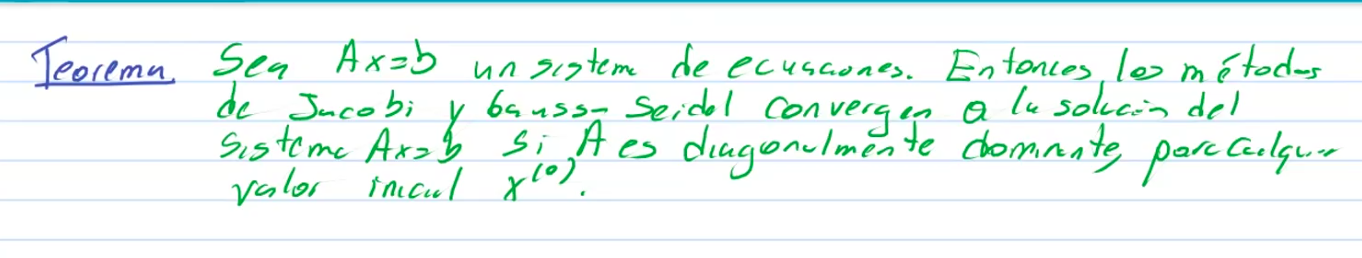 Teorema. Sea Ax=b un sistema de ecuaciones. Entonces, los métodos
de Jacobi y Gauss-Seidel convergen a la solución del
sistema Ax=b si A es diagonalmente dominante, para cualquier
valor inicial x^(0).